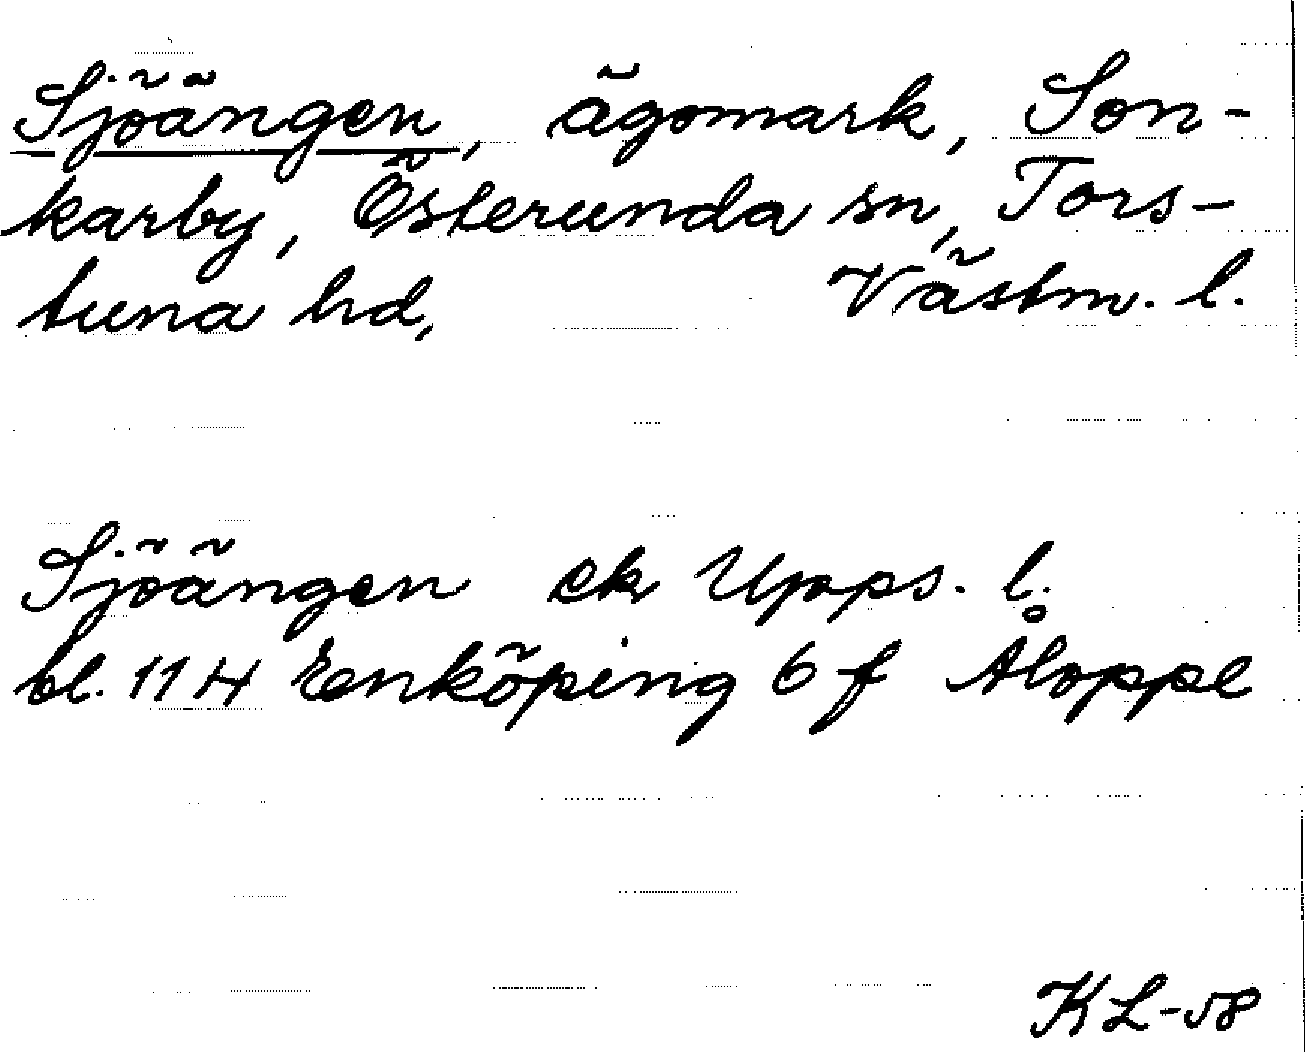 Sjöängen, ägomark, Son-
karby, Österunda sn, Tors-
tuna hd, Västm. l.
Sjöängen ek Upps. l.
bl. 11 H Enköping 6 f Åloppe
KL-58